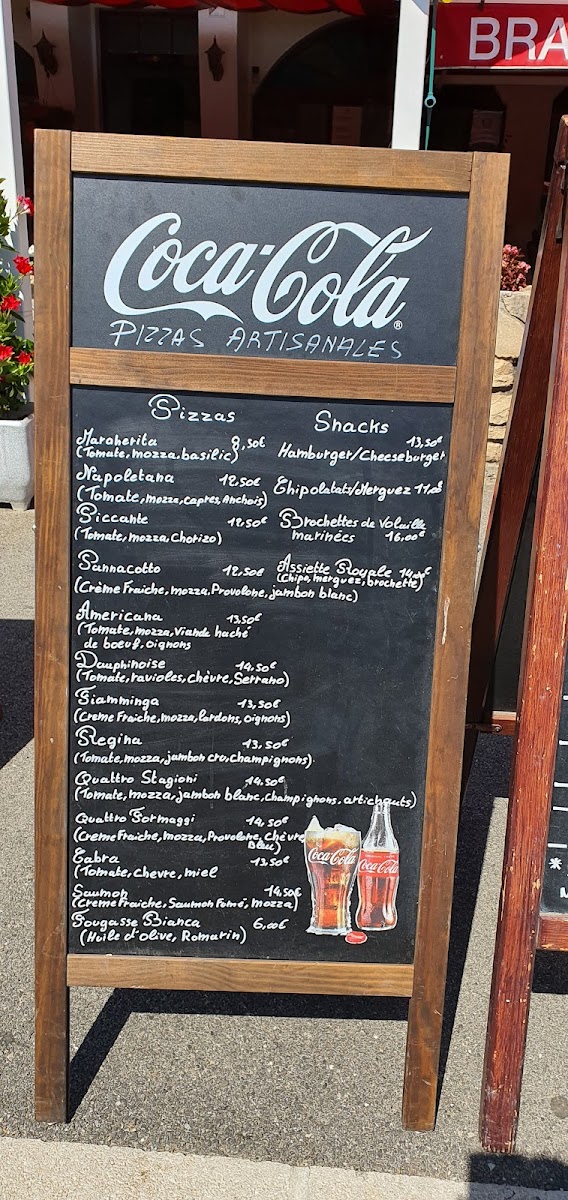 BRA
Coca-Cola®
PIZZAS ARTISANALES
Pizzas
Margherita 8,50€
(Tomate, mozza, basilic)
Napoletana 12,50€
(Tomate, mozza, capres, Anchois)
Piccante 12,50€
(Tomate, mozza, Chorizo)
Pannacotto 12,50€
(Crème Fraiche, mozza, Provolone, jambon blanc)
Americana 13,50€
(Tomate, mozza, Viande haché
de boeuf, oignons
Dauphinoise 14,50€
(Tomate, ravioles, chèvre, Serrano)
Fiamminga 13,50€
(Creme Fraiche, mozza, lardons, oignons)
Regina 13,50€
(Tomate, mozza, jambon cru, champignons)
Quattro Stagioni 14,50€
(Tomate, mozza, jambon blanc, champignons, artichauts)
Quattro Formaggi 14,50€
(Creme Fraiche, mozza, Provolone, chèvre
Bleu)
Cabra 13,50€
(Tomate, chevre, miel
Saumon 14,50€
(Creme Fraiche, Saumon Fumé, mozza)
Fougasse Bianca 6,00€
(Huile d'olive, Romarin)
Snacks
13,50€
Hamburger/Cheeseburger
Chipolatats/Merguez 11,00€
Brochettes de Volaille
marinées 16,00€
Assiette Royale 14,00€
(Chipo, merguez, brochette)
Coca-Cola
Coca-Cola